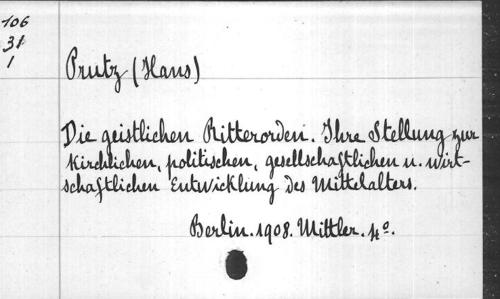 106
31
1
Prutz (Hans)
Die geistlichen Ritterorden. Ihre Stellung zur
kirchlichen, politischen, gesellschaftlichen u. wirt-
schaftlichen Entwicklung des Mittelalters.
Berlin. 1908. Mittler. 4º.